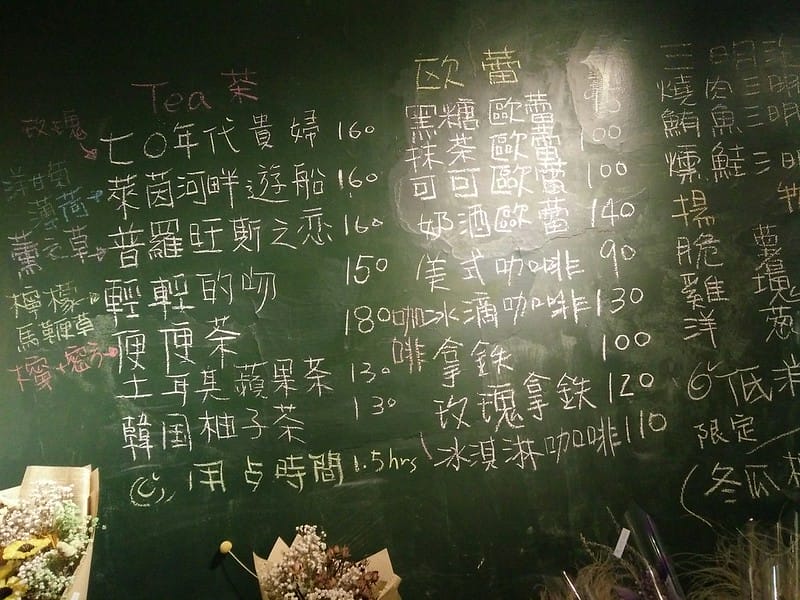 Tea 茶
玫瑰
七〇年代貴婦 160
洋甘菊
萊茵河畔遊船 160
薄荷
薰衣草
普羅旺斯之恋 160
檸檬
輕輕的吻 150
馬鞭草
便便茶 180
土耳其蘋果茶 130
韓国柚子茶 130
用占時間 1.5hrs
欧蕾
黑糖歐蕾
抹茶歐蕾 100
可可歐蕾 100
奶酒歐蕾 140
美式咖啡 90
冰滴咖啡 130
咖啡拿鉄 100
玫瑰拿鉄 120
冰淇淋咖啡 110
三明
燒肉三明
鮪魚三明
燻鮭三明
揚
脆
雞
洋
蔥
低消
限定
(冬瓜